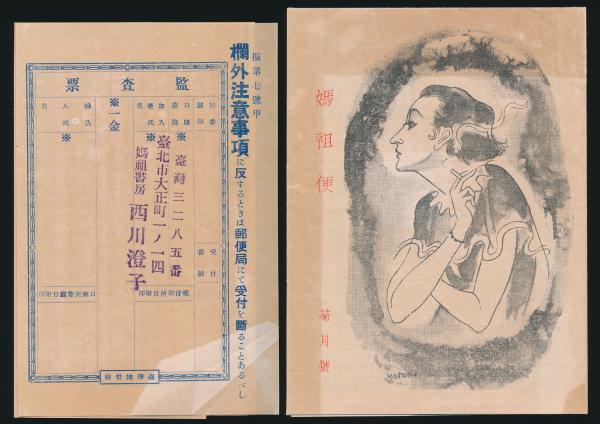 振第七號甲
欄外注意事項に反するときは郵便局にて受付を斷ることあるべし
監査票
口座番號
加入者氏名
拂込人氏名
※
※一金
※
臺灣三二八五番
臺北市大正町一ノ一四
媽祖書房 西川澄子
受付番號
受付局所日附印
口座所管廳日附印
臺灣總督府
媽祖便
菊月號